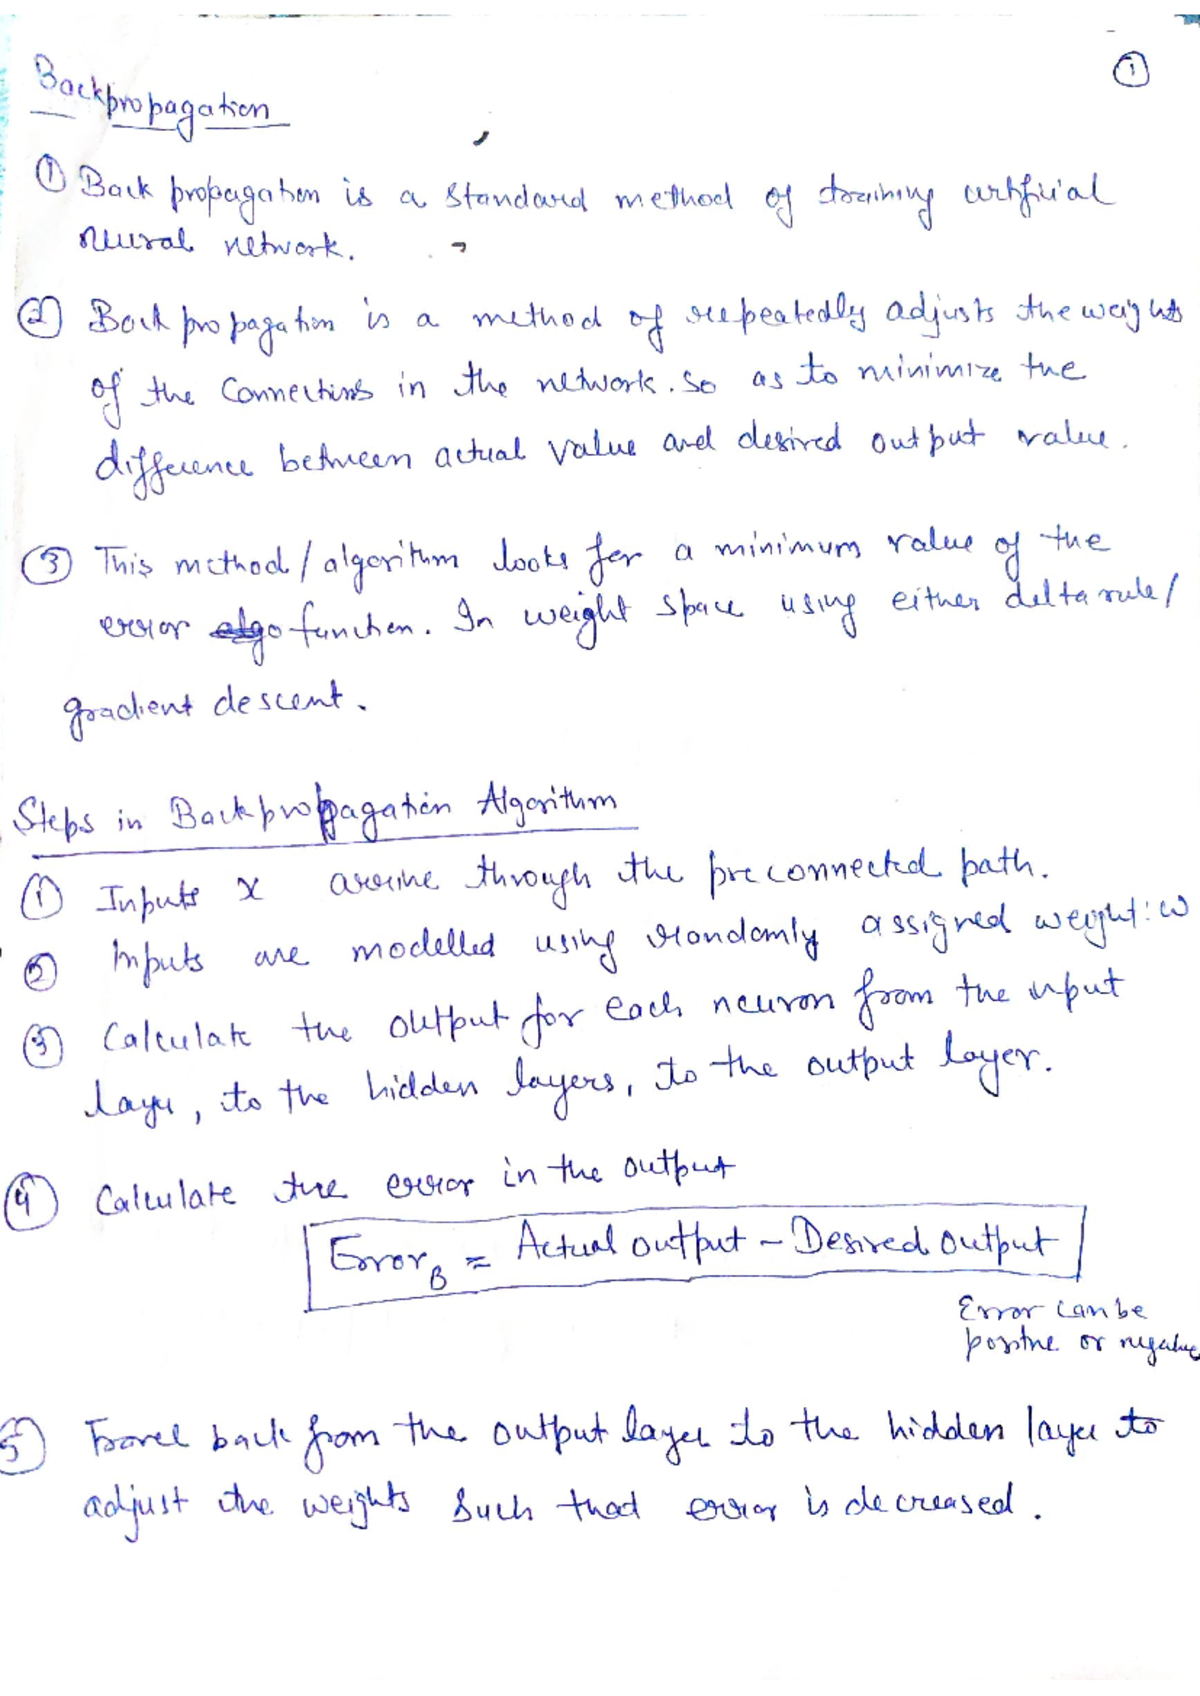 ①
Backpropagation
① Back propagation is a standard method of training artificial
neural network.
② Back propagation is a method of repeatedly adjusts the weights
of the Connections in the network. So as to minimize the
difference between actual value and desired output value.
③ This method / algorithm looks for a minimum value of the
error algo function. In weight space using either delta rule /
gradient descent.
Steps in Backpropagation Algorithm
① Inputs X arrive through the preconnected path.
② Inputs are modelled using randomly assigned weight: W
③ Calculate the output for each neuron from the input
layer, to the hidden layers, to the output layer.
④ Calculate the error in the output
Error_B = Actual output - Desired output
Error can be
positive or negative
⑤ Travel back from the output layer to the hidden layer to
adjust the weights such that error is decreased.